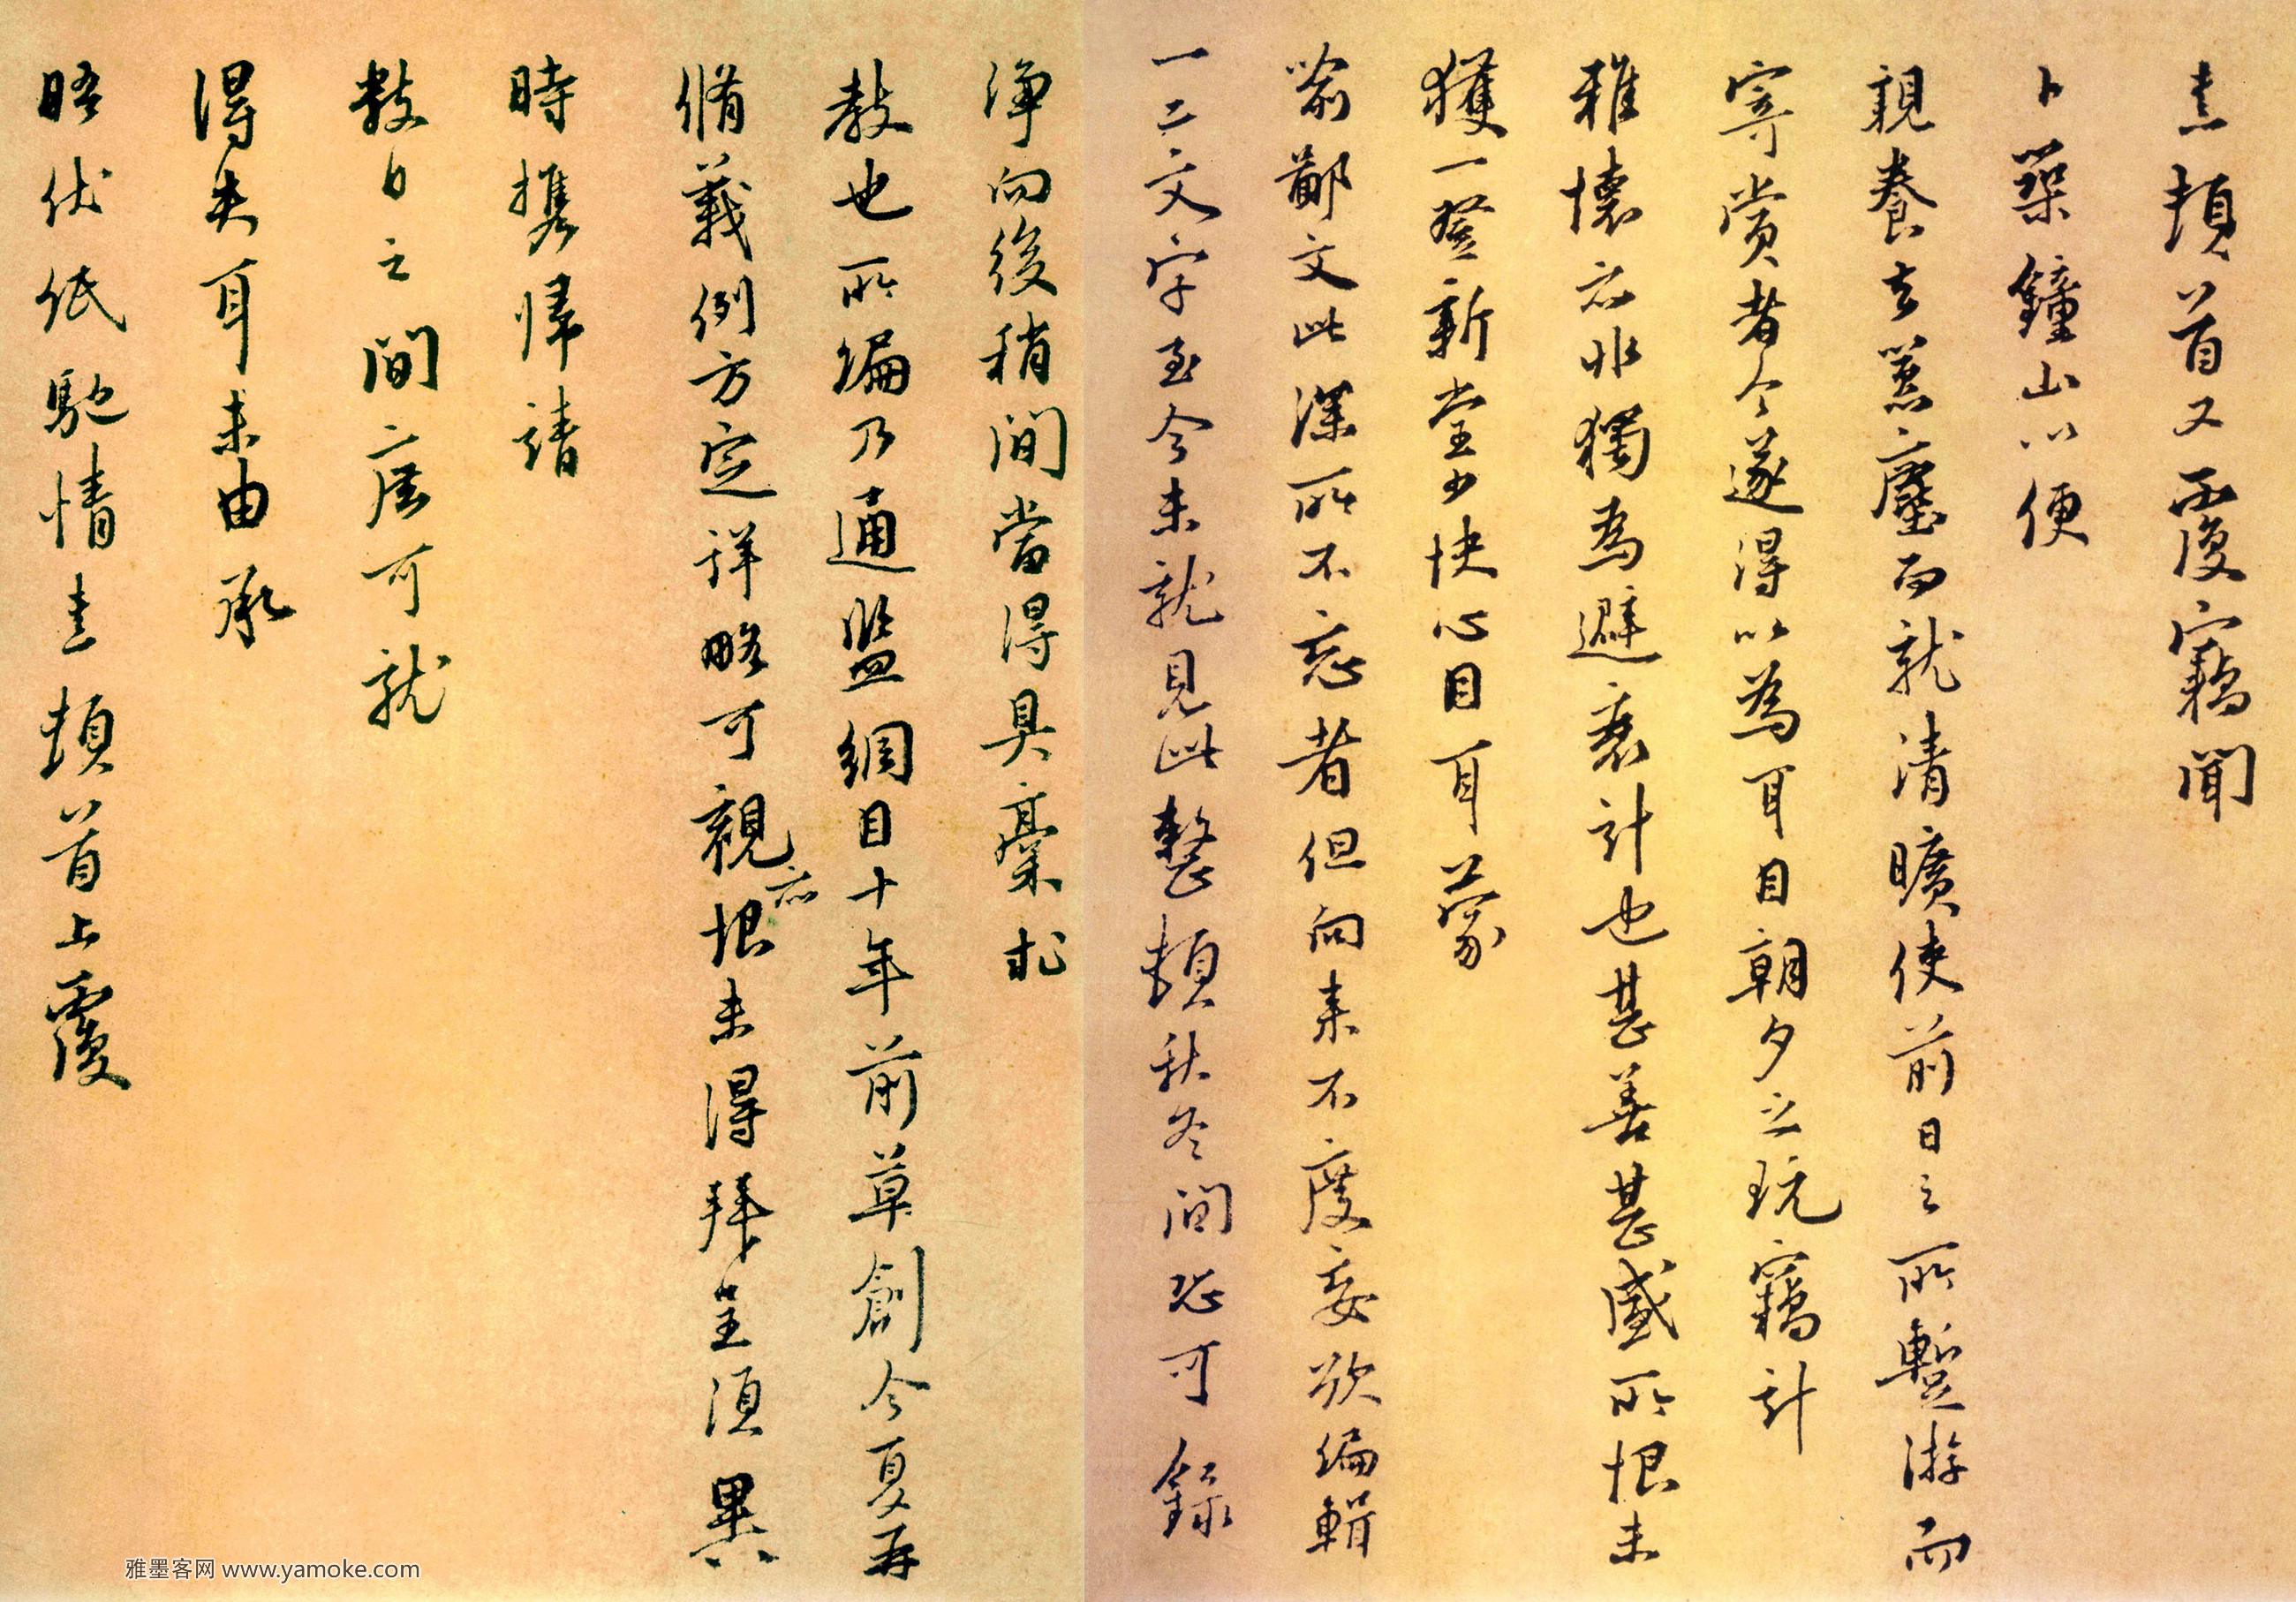 熹頓首又覆竊聞
卜築鐘山以便
親養去囂塵而就清曠使前日之所暫游而
寄賞者今遂得以為耳目朝夕之玩竊計
雅懷亦非獨為避衰計也甚善甚盛所恨未
獲一登新堂少快心目耳蒙
喻鄙文此深所不忘者但向來不度妄欲編輯
一二文字至今未就見此整頓秋冬間恐可錄
淨向後稍間當得具稾求
教也所編乃通鑑綱目十年前草創今夏再
脩義例方定詳略可觀亦恨未得拜呈須異
時攜歸請
教日之間庶可就
得失耳未由承
晤伏紙馳情熹頓首上覆
雅墨客网 www.yamoke.com